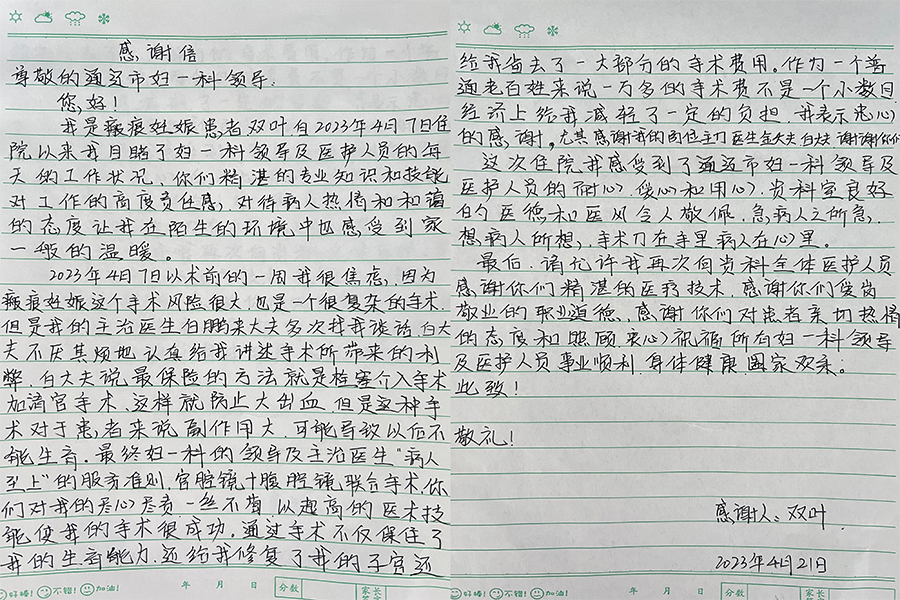 感谢信
尊敬的通辽市妇一科领导:
您好!
我是瘢痕妊娠患者双叶自2023年4月7日住
院以来我目睹了妇一科领导及医护人员的每
天的工作状况、你们精湛的专业知识和技能
对工作的高度责任感,对待病人热情和和蔼
的态度让我在陌生的环境中也感受到家
一般的温暖。
2023年4月7日以术前的一周我很焦虑,因为
瘢痕妊娠这个手术风险很大,也是一个很复杂的手术.
但是我的主治医生白鹏来大夫多次找我谈话,白大
夫不厌其烦地认真给我讲述手术所带来的利
弊,白大夫说最保险的方法就是栓塞介入手术
加清宫手术、这样就防止大出血,但是这种手
术对于患者来说副作用大,可能导致以后不
能生育.最终妇一科的领导及主治医生“病人
至上”的服务准则,宫腔镜+腹腔镜联合手术,你
们对我的尽心尽责一丝不苟,以超高的医术技
能使我的手术很成功,通过手术不仅保住了
我的生育能力,还给我修复了我的子宫还
好棒! 不错! 加油! 年 月 日 分数 家长
给我省去了一大部分的手术费用。作为一个普
通老百姓来说一万多的手术费不是一个小数目.
经济上给我减轻了一定的负担,我表示衷心
的感谢,尤其感谢我的
谢谢你们
这次住院我感受到了通辽市妇一科领导及
医护人员的耐心、爱心和用心,贵科室良好
的医德和医风令人敬佩,急病人之所急,
想病人所想,手术刀在手里病人在心里。
最后,请允许我再次向贵科全体医护人员
感谢你们精湛的医疗技术,感谢你们爱岗
敬业的职业道德、感谢你们对患者亲切热情
的态度和照顾,衷心祝福所在妇一科领导
及医护人员事业顺利,身体健康,阖家欢乐。
此致!
敬礼!
感谢人:双叶
2023年4月21日
好棒! 不错! 加油! 年 月 日 分数 家长